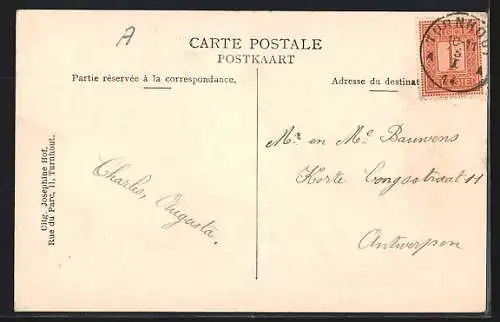 A
CARTE POSTALE
POSTKAART
Partie réservée à la correspondance.
Adresse du destinat
TURNHOUT
1
Mr. en Me. Bauwens
Korte Congostraat 11
Antwerpen
Charles, Augusta.
Uitg. Josephine Hof,
Rue du Parc, 11, Turnhout.